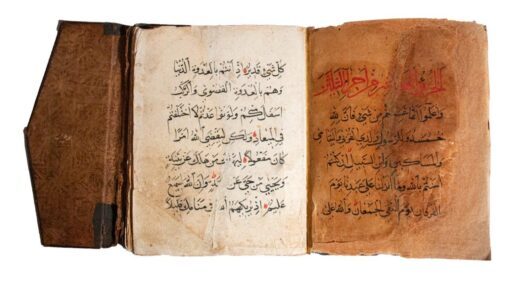 واعلموا انما غنمتم من شئ فان لله
خمسه وللرسول ولذي القربى واليتامى
والمساكين وابن السبيل ان كنتم
امنتم بالله وما انزلنا على عبدنا يوم
الفرقان يوم التقى الجمعان والله على
كل شئ قدير اذ انتم بالعدوة الدنيا
وهم بالعدوة القصوى والركب
اسفل منكم ولو تواعدتم لاختلفتم
في الميعاد ولكن ليقضي الله امرا
كان مفعولا ليهلك من هلك عن بينة
ويحيى من حي عن بينة وان الله لسميع
عليم اذ يريكهم الله في منامك قليلا